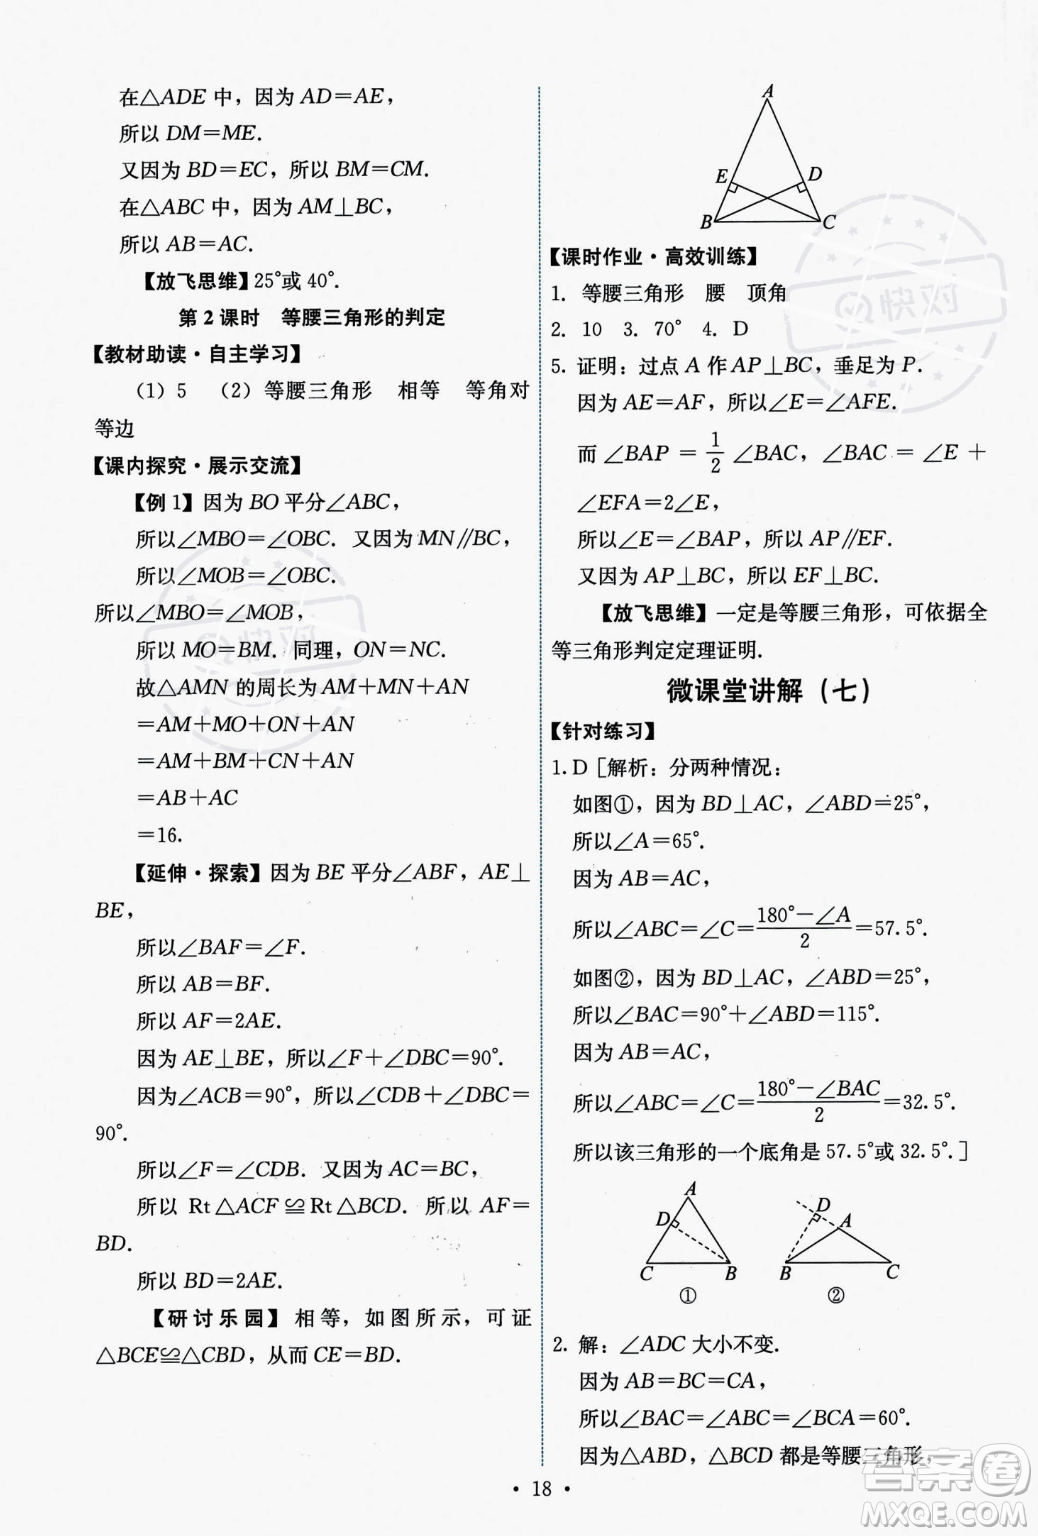 在△ADE 中，因为 AD＝AE，
所以 DM＝ME．
又因为 BD＝EC，所以 BM＝CM．
在△ABC 中，因为 AM⊥BC，
所以 AB＝AC．
【放飞思维】25°或 40°．
第 2 课时　等腰三角形的判定
【教材助读·自主学习】
（1）5　（2）等腰三角形　相等　等角对
等边
【课内探究·展示交流】
【例 1】因为 BO 平分∠ABC，
所以∠MBO＝∠OBC．又因为 MN∥BC，
所以∠MOB＝∠OBC．
所以∠MBO＝∠MOB，
所以 MO＝BM．同理，ON＝NC．
故△AMN 的周长为 AM＋MN＋AN
＝AM＋MO＋ON＋AN
＝AM＋BM＋CN＋AN
＝AB＋AC
＝16．
【延伸·探索】因为 BE 平分∠ABF，AE⊥
BE，
所以∠BAF＝∠F．
所以 AB＝BF．
所以 AF＝2AE．
因为 AE⊥BE，所以∠F＋∠DBC＝90°．
因为∠ACB＝90°，所以∠CDB＋∠DBC＝
90°．
所以∠F＝∠CDB．又因为 AC＝BC，
所以 Rt△ACF≌Rt△BCD．所以 AF＝
BD．
所以 BD＝2AE．
【研讨乐园】相等，如图所示，可证
△BCE≌△CBD，从而 CE＝BD．
A
E
D
B
C
【课时作业·高效训练】
1．等腰三角形　腰　顶角
2．10　3．70°　4．D
5．证明：过点 A 作 AP⊥BC，垂足为 P．
因为 AE＝AF，所以∠E＝∠AFE．
而∠BAP＝1/2∠BAC，∠BAC＝∠E＋
∠EFA＝2∠E，
所以∠E＝∠BAP，所以 AP∥EF．
又因为 AP⊥BC，所以 EF⊥BC．
【放飞思维】一定是等腰三角形，可依据全
等三角形判定定理证明．
微课堂讲解（七）
【针对练习】
1．D［解析：分两种情况：
如图①，因为 BD⊥AC，∠ABD＝25°，
所以∠A＝65°．
因为 AB＝AC，
所以∠ABC＝∠C＝(180°－∠A)/2＝57.5°．
如图②，因为 BD⊥AC，∠ABD＝25°，
所以∠BAC＝90°＋∠ABD＝115°．
因为 AB＝AC，
所以∠ABC＝∠C＝(180°－∠BAC)/2＝32.5°．
所以该三角形的一个底角是 57.5°或 32.5°．］
A
D
C
B
①
D
A
B
C
②
2．解：∠ADC 大小不变．
因为 AB＝BC＝CA，
所以∠BAC＝∠ABC＝∠BCA＝60°．
因为△ABD，△BCD 都是等腰三角形，
· 18 ·
快对
快对
答案圈
MXQE.COM